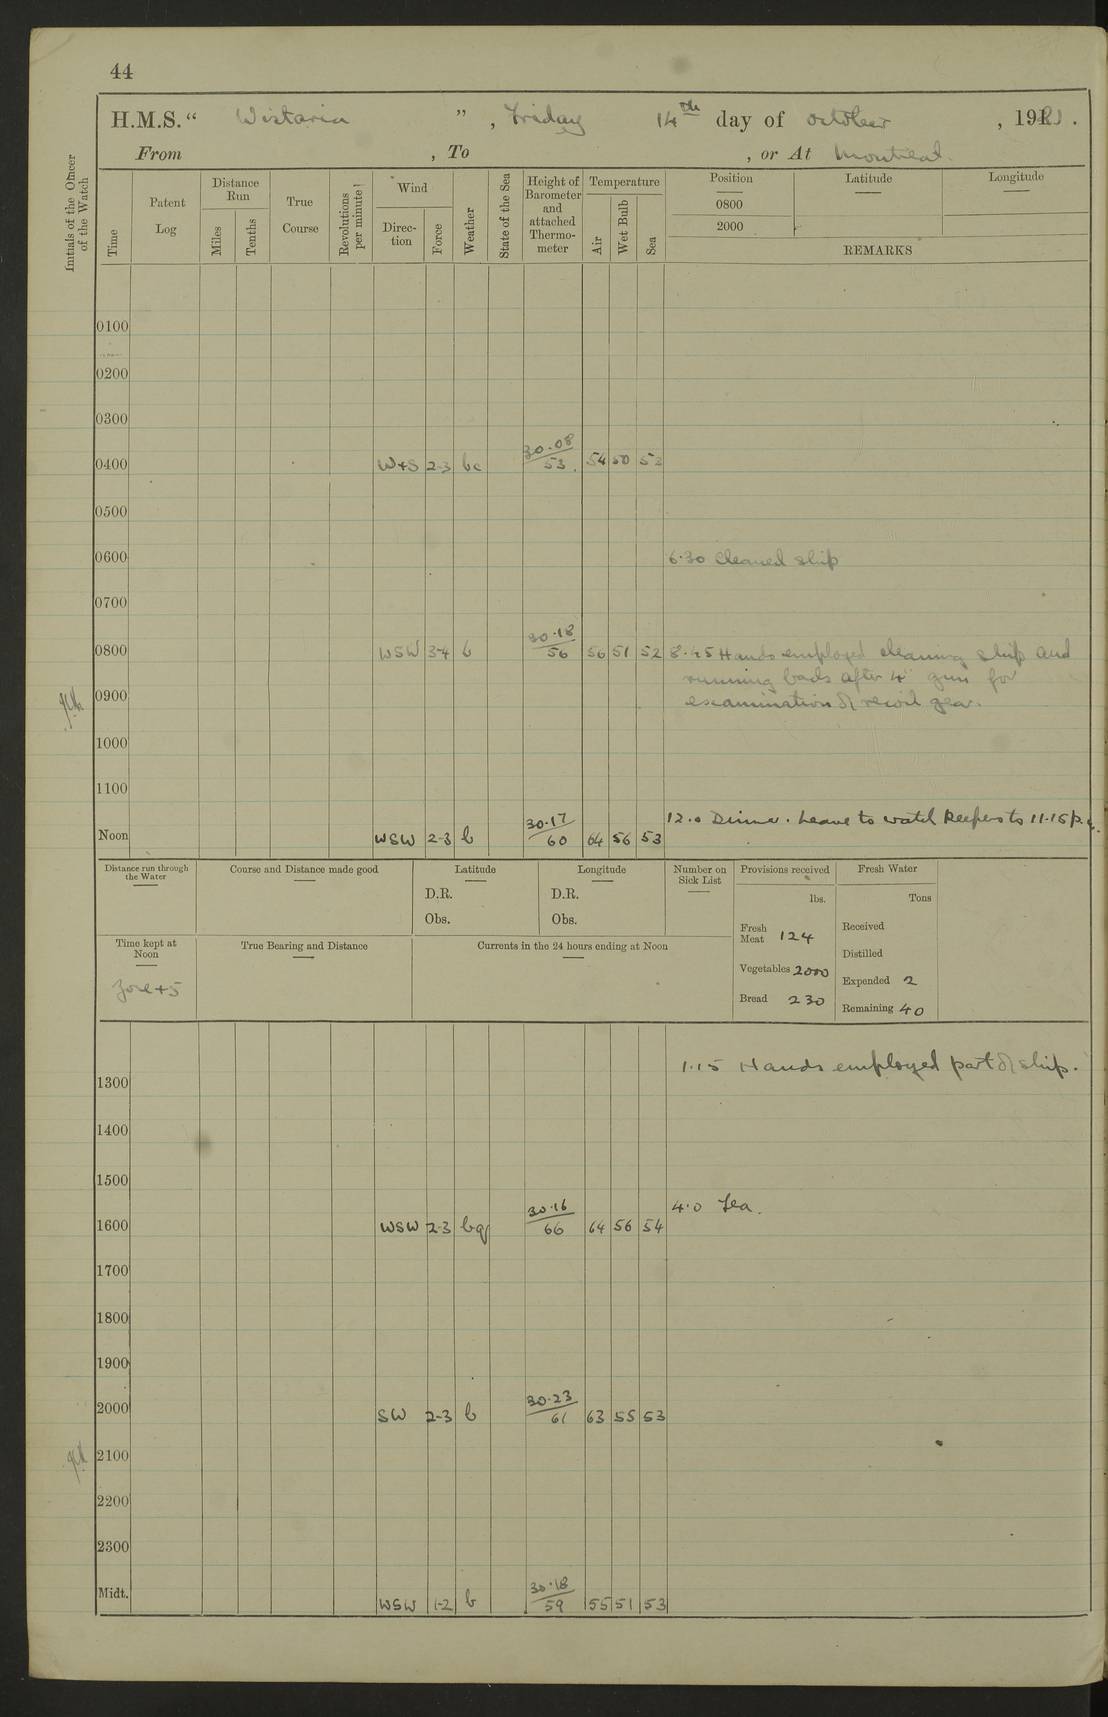 44
H.M.S. “ Wistaria ” , Friday 14th day of October , 1921 .
From , To , or At Montreal.
Initials of the Officer of the Watch
Time
Patent Log
Distance Run
Miles
Tenths
True Course
Revolutions per minute
Wind
Direc-tion
Force
Weather
State of the Sea
Height of Barometer and attached Thermo-meter
Temperature
Air
Wet Bulb
Sea
Position Latitude Longitude
0800
2000
REMARKS
0100
0200
0300
0400 W+S 2-3 bc 30.08 / 53 54 50 53
0500
0600 6.30 Cleaned ship
0700
0800 WSW 3-4 b 30.18 / 56 56 51 52 8.45 Hands employed cleaning ship and
running back after 4" gun for
0900 examination of recoil gear.
1000
1100
12.0 Dinner. Leave to watch keepers to 11.15 p.
Noon WSW 2-3 b 30.17 / 60 64 56 53
Distance run through the Water
Course and Distance made good
Latitude
D.R.
Obs.
Longitude
D.R.
Obs.
Number on Sick List
Provisions received
lbs.
Fresh Meat 124
Vegetables 2000
Bread 230
Fresh Water
Tons
Received
Distilled
Expended 2
Remaining 40
Time kept at Noon
Zone +5
True Bearing and Distance
Currents in the 24 hours ending at Noon
1.15 Hands employed part of ship.
1300
1400
1500
4.0 Tea.
1600 WSW 2-3 bq 30.16 / 66 64 56 54
1700
1800
1900
2000 SW 2-3 b 30.23 / 61 63 55 53
2100
2200
2300
Midt. WSW 1-2 b 30.18 / 59 55 51 53